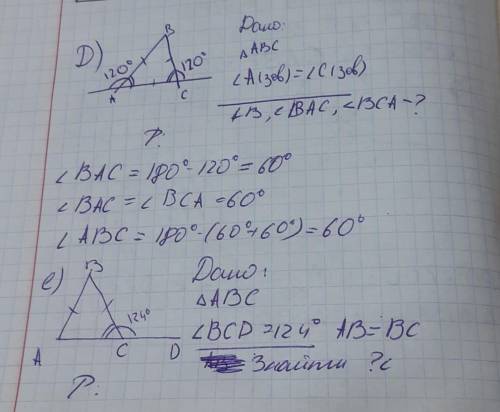 D)
B
120° 120°
A C
Дано:
△ABC
∠A(зов)=∠C(зов)
∠B, ∠BAC, ∠BCA-?
Р:
∠BAC = 180°-120°=60°
∠BAC = ∠BCA =60°
∠ABC = 180°-(60°+60°)=60°
e)
B
124°
A C D
Дано:
△ABC
∠BCD =124° AB=BC
Знайти ?
Р: